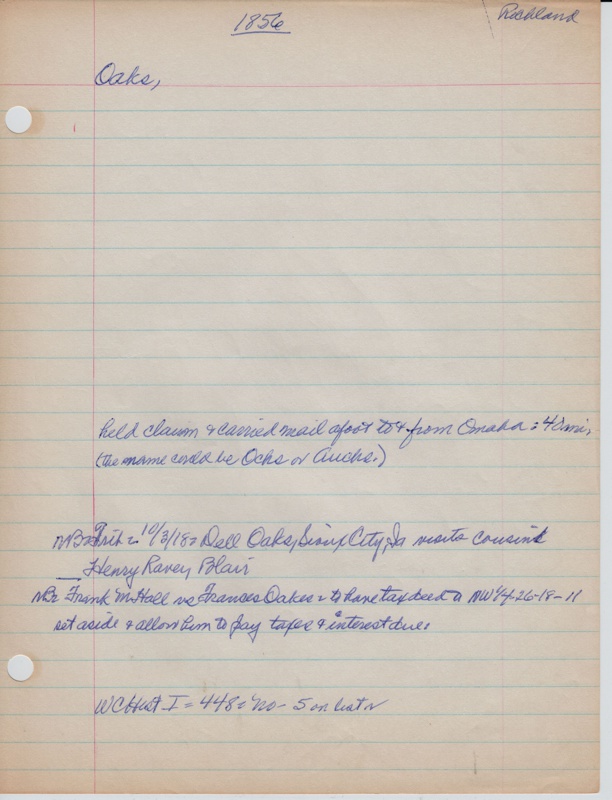 1856
Richland
Oaks,
held claim & carried mail afoot to & from Omaha: 40 mi,
(the name could be Ochs or Auchs.)
NB Trib 10/3/18 = Dell Oaks, Sioux City, Ia visits cousins
Henry Ravey Blair
NB Frank M. Hall vs Frances Oakes = to have tax deed NW 1/4-26-18-11
set aside & allow him to pay taxes & interest due.
WC Hist I = 448 = No- 5 on list